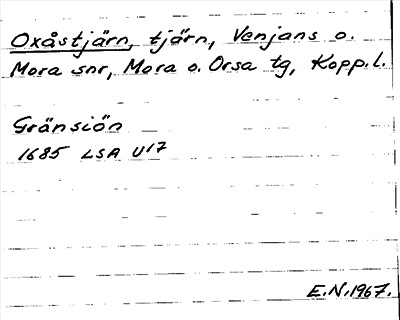 Oxåstjärn, tjärn, Venjans o.
Mora snr, Mora o. Orsa tg, Kopp.l.
Gränsiön
1685 LSA U17
E.N.1967.